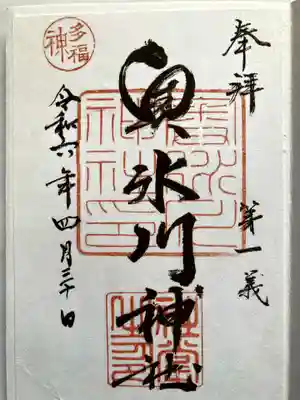 奉拝
第一義
奥氷川神社
神社印
多福神
令和六年四月三十日